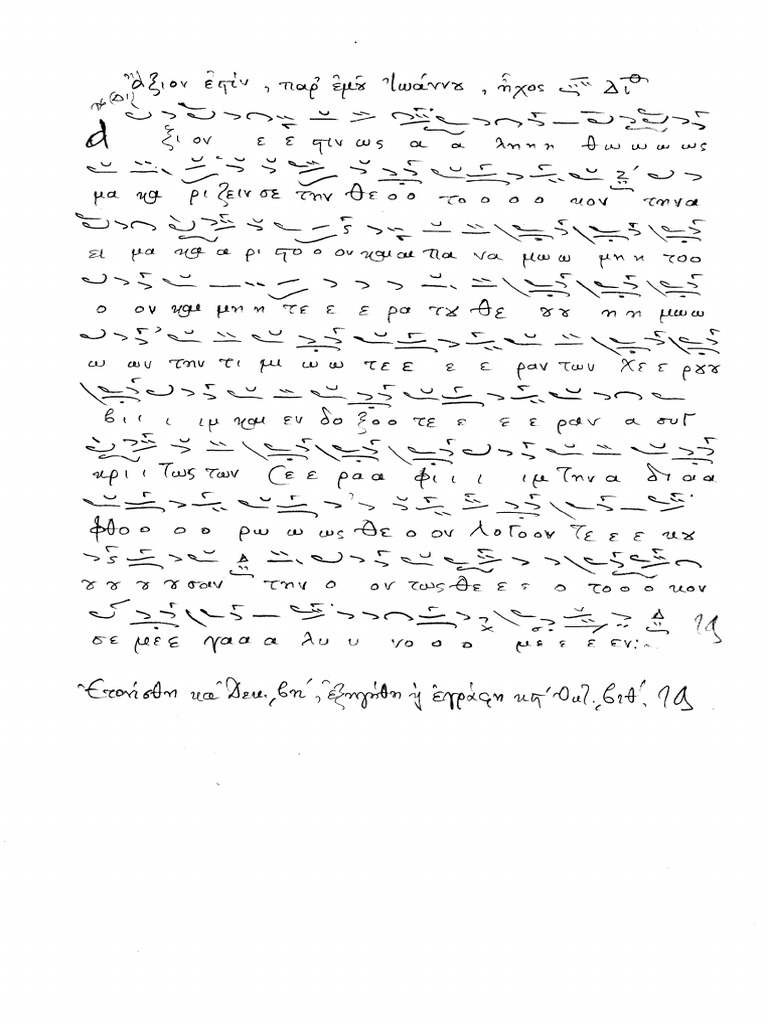 Ἄξιον ἐστίν, παρ' ἐμοῦ Ἰωάννου, ἦχος Δι
α ξι ον ε ε στιν ως α α λη η η θω ω ω ω ως
μα κα ρι ζειν σε την Θε ο ο το ο ο ο κον την α
ει μα κα α ρι στο ο ον και αι πα να μω ω μη η το ο
ο ον και μη η τε ε ε ρα του Θε ου ου η η μω ω
ω ων την τι μι ω ω τε ε ε ε ραν των Χε ε ρου ου
βι ι ι ιμ και εν δο ξο ο τε ε ε ε ραν α συγ
κρι ι τως των Σε ε ρα α φι ι ι ιμ την α δι α α
φθο ο ο ο ρω ω ω ως Θε ο ον Λο γο ον τε ε ε κου
ου ου ου ου σαν την ο ον τως Θε ε ε ο το ο ο κον
σε με ε γα α α λυ υ νο ο ο με ε ε εν: